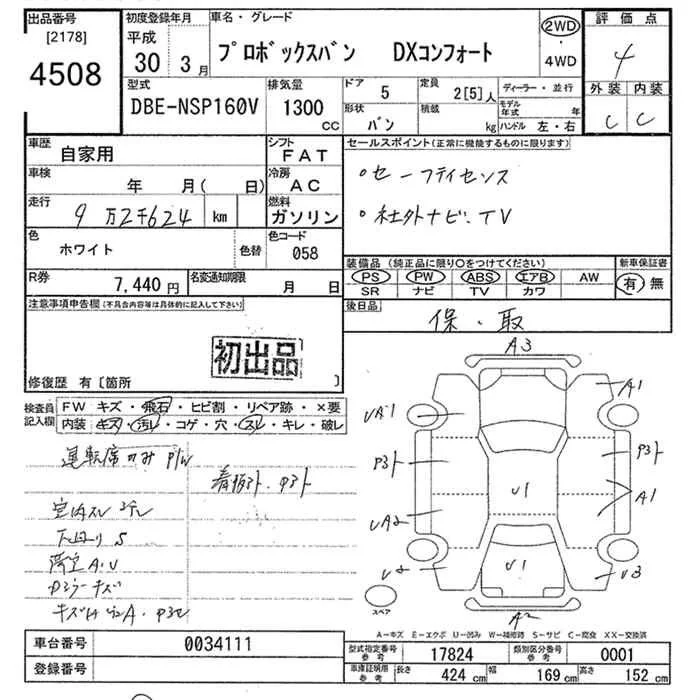 出品番号 初度登録年月 車名・グレード 評価点
[2178] 平成 2WD
4508 30 3月 プロボックスバン DXコンフォート ・ 4
4WD
型式 排気量 ドア 5 定員 2[5]人 ディーラー・並行 外装 内装
DBE-NSP160V 1300 cc 形状 バン 積載 kg モデル年式 年 C C
ハンドル 左・右
車歴 自家用 シフト FAT セールスポイント(正常に機能するものに限ります)
車検 年 月( 日) 冷房 AC 。セーフティセンス
走行 9万2千624 km 燃料 ガソリン 。社外ナビ.TV
色 ホワイト 色替 色コード 058
装備品(純正品に限り○をつけてください) 新車保証書
R券 7,440円 名変通知期限 月 日 PS PW ABS エアB AW 有・無
SR ナビ TV カワ
注意事項申告欄(不具合内容等は具体的に記入して下さい) 後日品
保・取
初出品
修復歴 有〔箇所 〕
検査員記入欄 FW キズ・飛石・ヒビ割・リペア跡・×要
内装 キズ・汚レ・コゲ・穴・スレ・キレ・破レ
運転席のみ P/W
看板外ト.P3ト
A3
A1
UA1
P3ト P3ト
U1 A1
UA2
U1
U2 U3
スペア
A2
A-キズ E-エクボ U-凹み W-補修跡 S-サビ C-腐食 XX-交換済
車台番号 0034111
型式指定番号 参考 17824 類別区分番号 参考 0001
登録番号
車庫証明用 参考 長さ 424 cm 幅 169 cm 高さ 152 cm